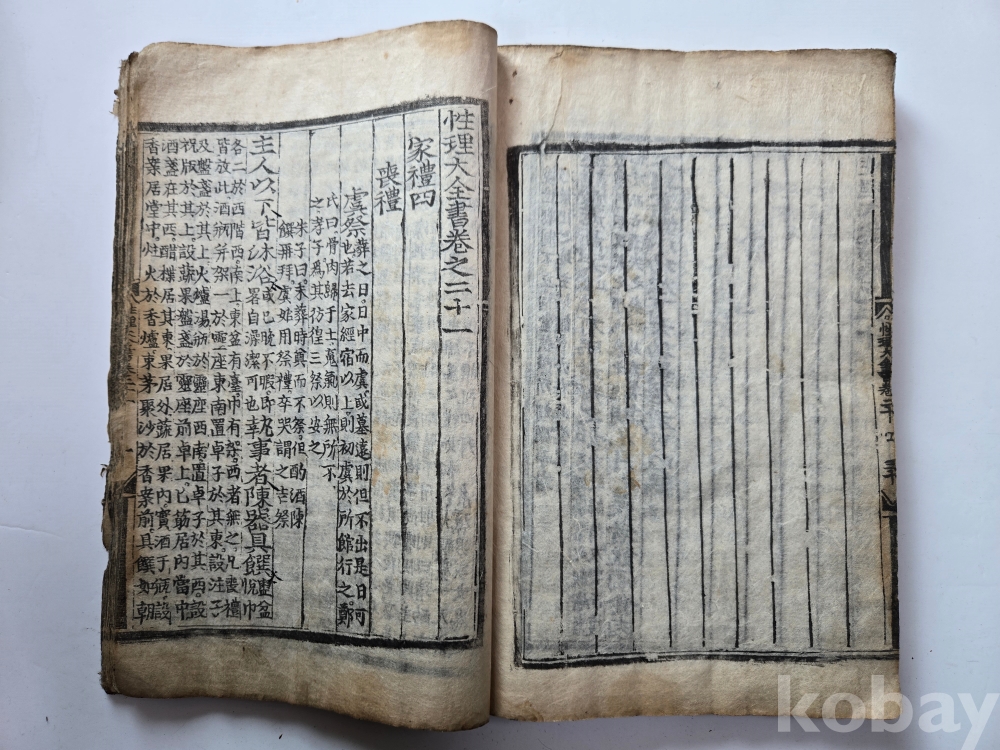 性理大全書卷之二十一
家禮四
喪禮
虞祭葬之日日中而虞或墓遠則但不出是日可
也若去家經宿以上則初虞於所館行之鄭
氏曰骨肉歸于土魂氣則無所不
之孝子爲其彷徨三祭以安之
朱子曰未葬時奠而不祭但酌酒陳
饌再拜虞始用祭禮卒哭謂之吉祭
主人以下皆沐浴或已晚不暇即
略自澡潔可也執事者陳器具饌盥盆帨巾
各二於西階西南上東盆有臺巾有架西者無之凡喪禮
皆放此酒瓶并架一於靈座東南置卓子於其東設注子
及盤盞於其上火爐湯瓶於靈座西南置卓子於其西設
祝版於其上設蔬果盤盞於靈座前卓上匕筯居內當中
酒盞在其西醋楪居其東果居外蔬居果內實酒于瓶設
香案居堂中炷火於香爐束茅聚沙於香案前具饌如朝
kobay